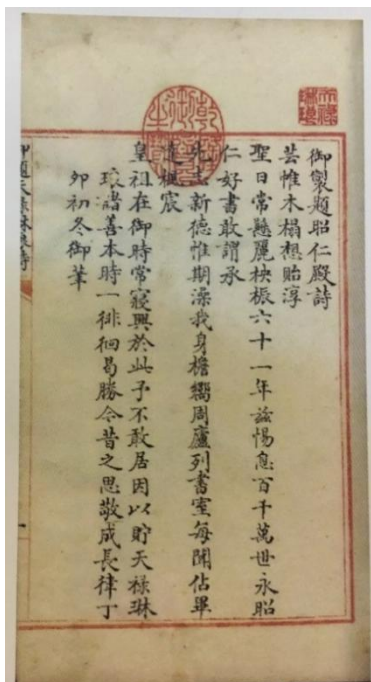 天祿琳琅
乾隆御覽之寶
御製題昭仁殿詩
芸帷木榻想貽淳
聖日常懸麗柍桭六十一年兹惕息百千萬世永昭
仁好書敢謂承
先志新德惟期澡我身檐嚮周廬列書室每聞佔畢
達楓宸
皇祖在御時常寢興於此予不敢居因以貯天祿琳
琅諸善本時一徘徊曷勝今昔之思敬成長律丁
卯初冬御筆